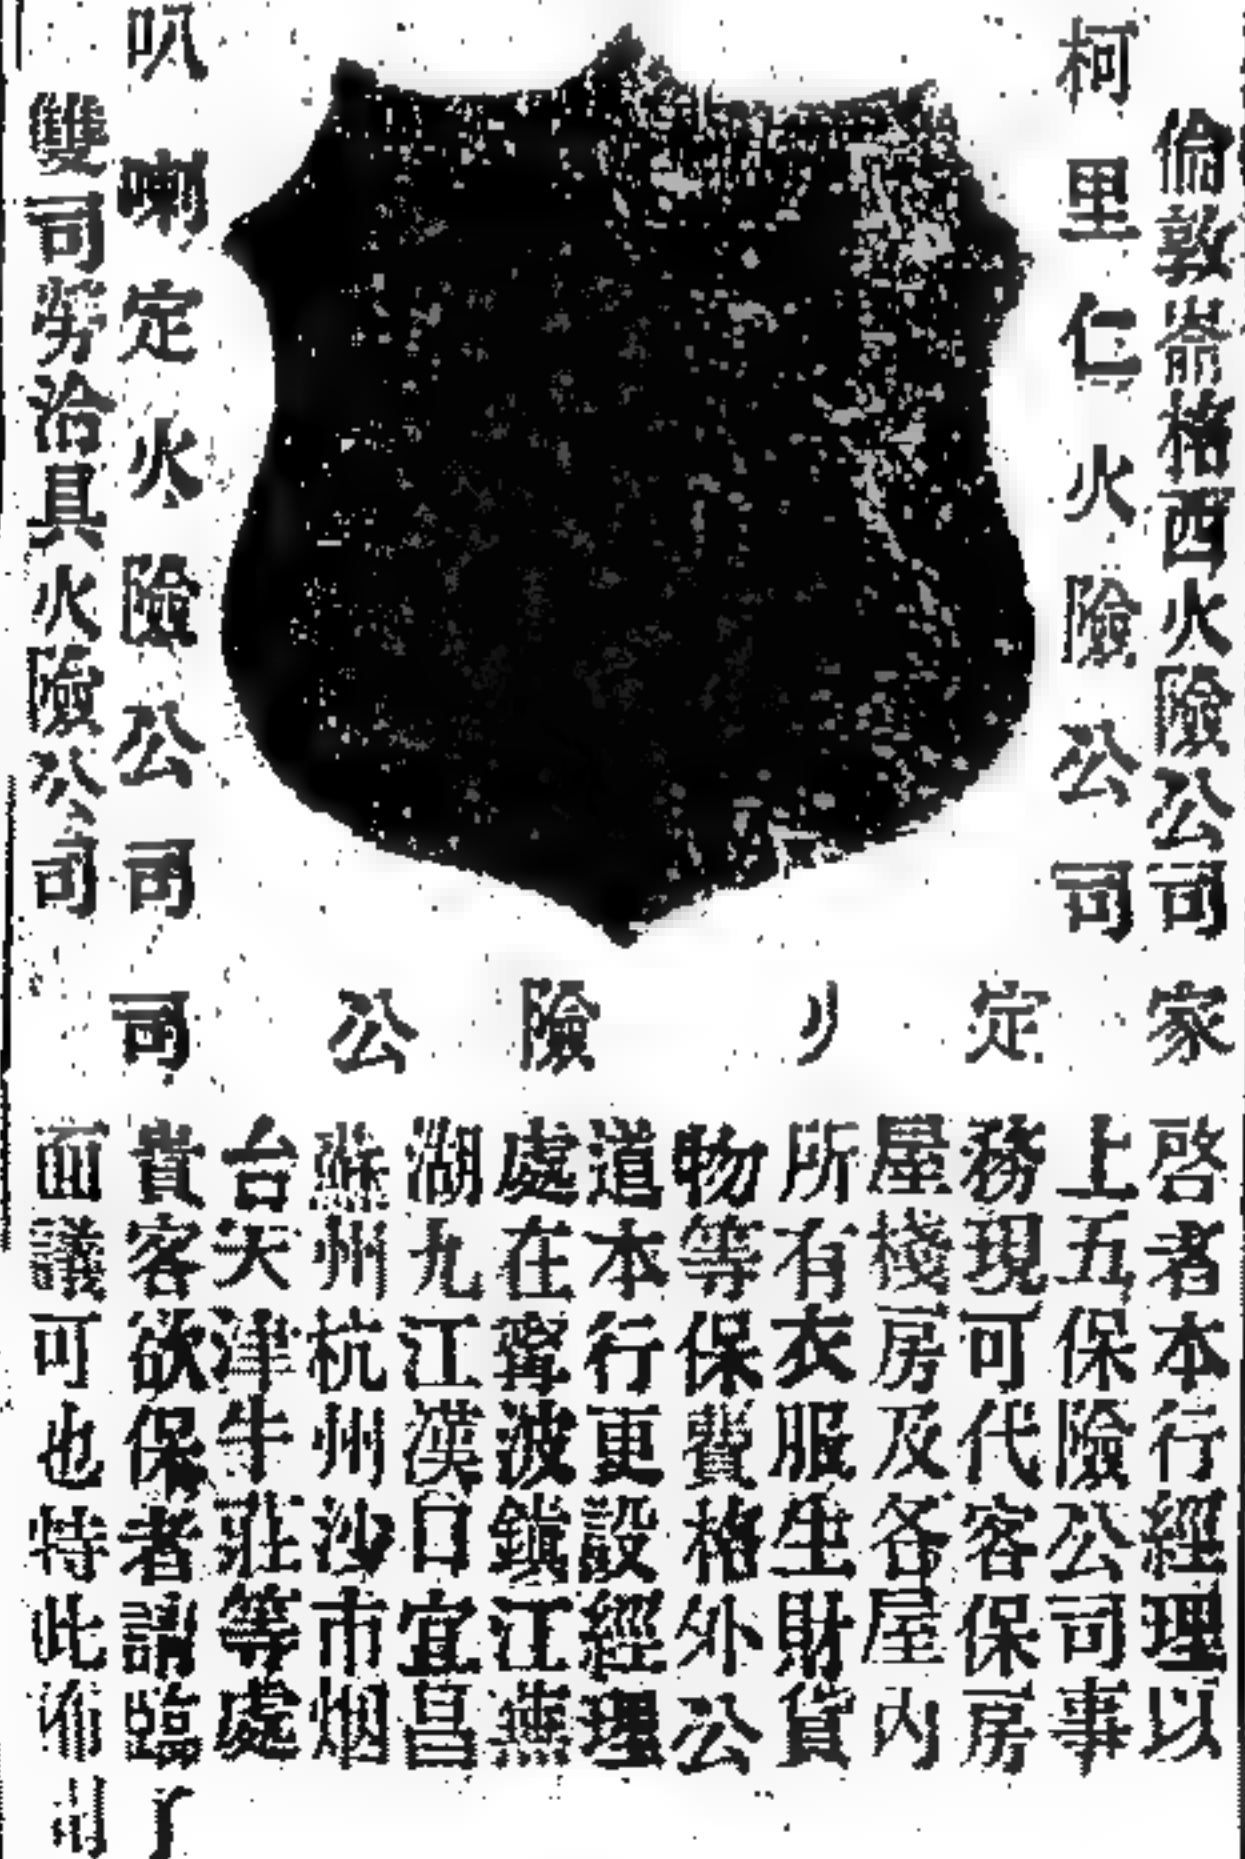 倫敦崙格西火險公司
柯里仁火險公司
叭喇定火險公司
雙司勞洽具火險公司
家定 險公司
啓者本行經理以
上五保險公司事
務現可代客保房
屋棧房及各屋內
所有衣服生財貨
物等保費格外公
道本行更設經理
處在甯波鎮江燕
湖九江漢口宜昌
蘇州杭州沙市烟
台天津牛莊等處
貴客欲保者請臨
面議可也特此佈